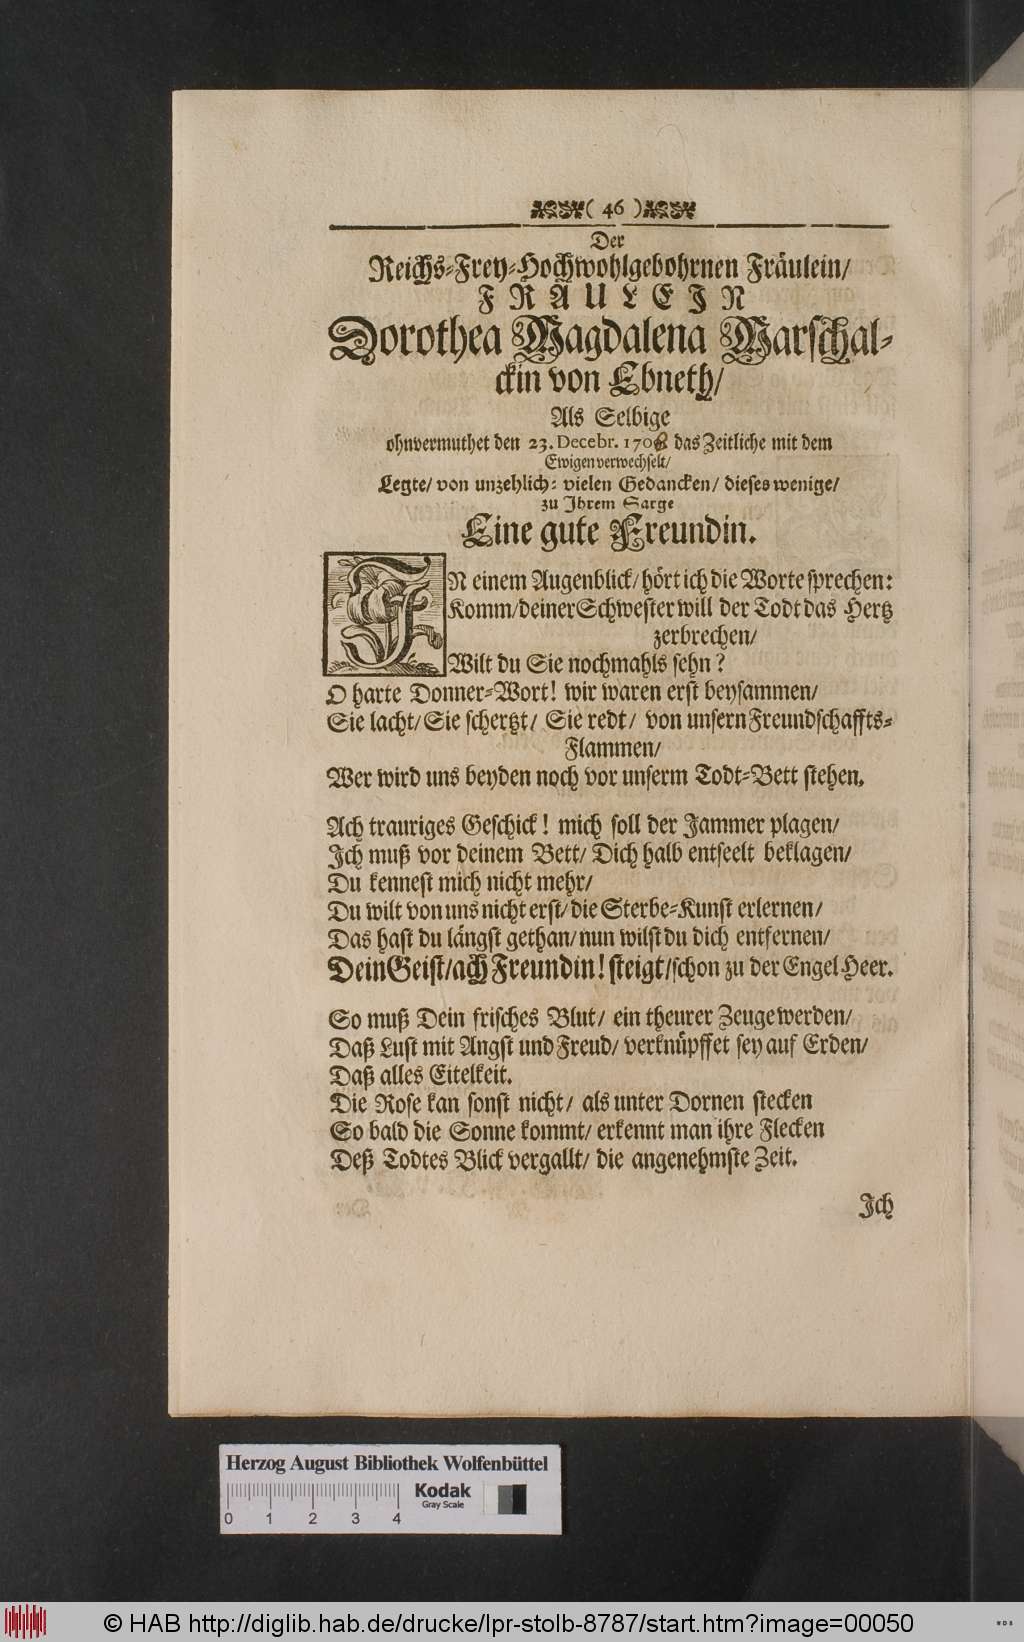 ( 46 )
Der
Reichs-Frey-Hochwohlgebohrnen Fräulein/
FRÄULEIN
Dorothea Magdalena Marschal-
ckin von Ebneth/
Als Selbige
ohnvermuthet den 23. Decebr. 1708 das Zeitliche mit dem
Ewigen verwechselt/
Legte/ von unzehlich- vielen Gedancken/ dieses wenige/
zu Ihrem Sarge
Eine gute Freundin.
IN einem Augenblick/ hört ich die Worte sprechen:
Komm/ deiner Schwester will der Todt das Hertz
zerbrechen/
Wilt du Sie nochmahls sehn?
O harte Donner-Wort! wir waren erst beysammen/
Sie lacht/ Sie schertzt/ Sie redt/ von unsern Freundschaffts-
Flammen/
Wer wird uns beyden noch vor unserm Todt-Bett stehen.
Ach trauriges Geschick! mich soll der Jammer plagen/
Ich muß vor deinem Bett/ Dich halb entseelt beklagen/
Du kennest mich nicht mehr/
Du wilt von uns nicht erst/ die Sterbe-Kunst erlernen/
Das hast du längst gethan/ nun wilst du dich entfernen/
Dein Geist/ ach Freundin! steigt/ schon zu der Engel Heer.
So muß Dein frisches Blut/ ein theurer Zeuge werden/
Daß Lust mit Angst und Freud/ verknüpffet sey auf Erden/
Daß alles Eitelkeit.
Die Rose kan sonst nicht/ als unter Dornen stecken
So bald die Sonne kommt/ erkennt man ihre Flecken
Deß Todtes Blick vergallt/ die angenehmste Zeit.
Ich
Herzog August Bibliothek Wolfenbüttel
Kodak
Gray Scale
0 1 2 3 4
© HAB http://diglib.hab.de/drucke/lpr-stolb-8787/start.htm?image=00050